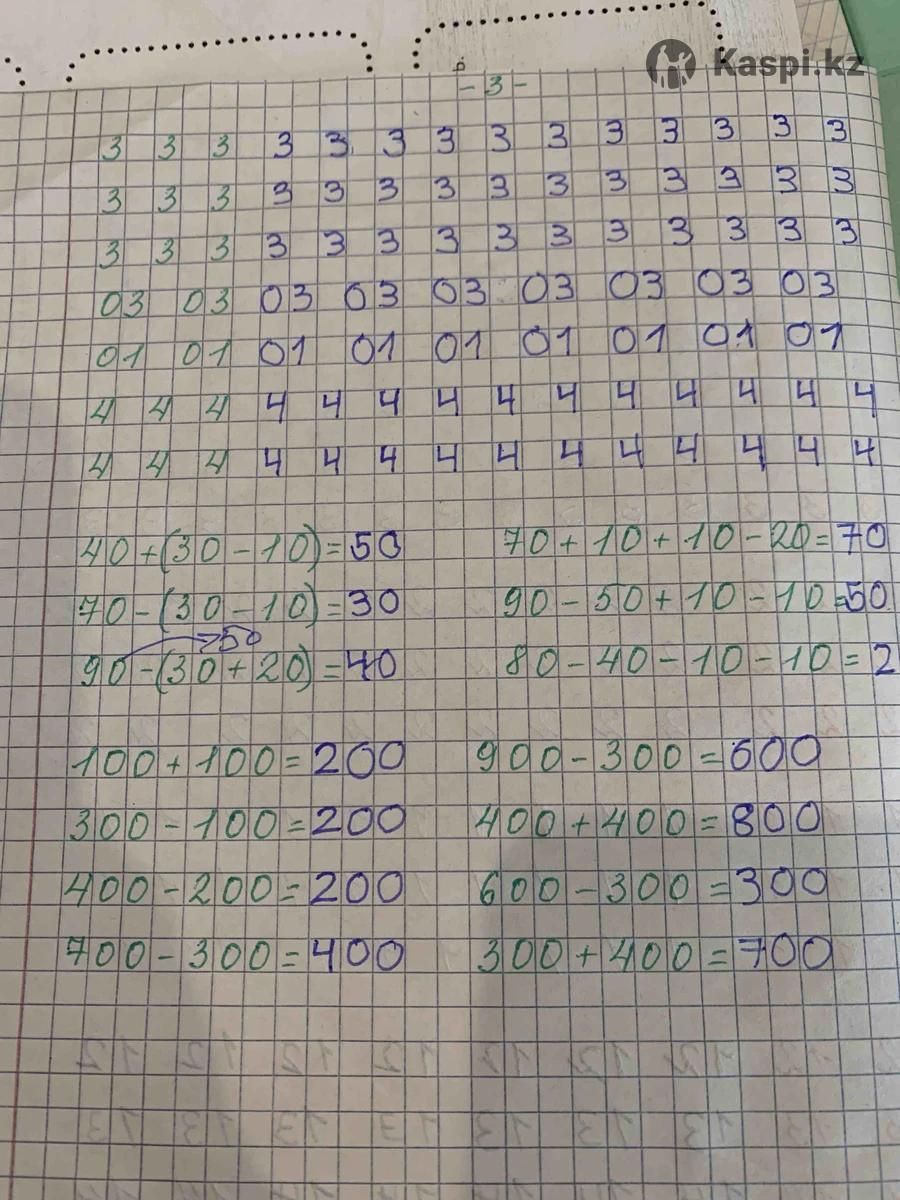 Kaspi.kz
- 3 -
3 3 3 3 3 3 3 3 3 3 3 3 3 3
3 3 3 3 3 3 3 3 3 3 3 3 3 3
3 3 3 3 3 3 3 3 3 3 3 3 3 3
03 03 03 03 03 03 03 03 03
01 01 01 01 01 01 01 01 01
4 4 4 4 4 4 4 4 4 4 4 4 4 4
4 4 4 4 4 4 4 4 4 4 4 4 4 4
40 + (30 - 10) = 50 70 + 10 + 10 - 20 = 70
70 - (30 - 10) = 30 90 - 50 + 10 - 10 = 50
50
90 - (30 + 20) = 40 80 - 40 - 10 - 10 = 2
100 + 100 = 200 900 - 300 = 600
300 - 100 = 200 400 + 400 = 800
400 - 200 = 200 600 - 300 = 300
700 - 300 = 400 300 + 400 = 700